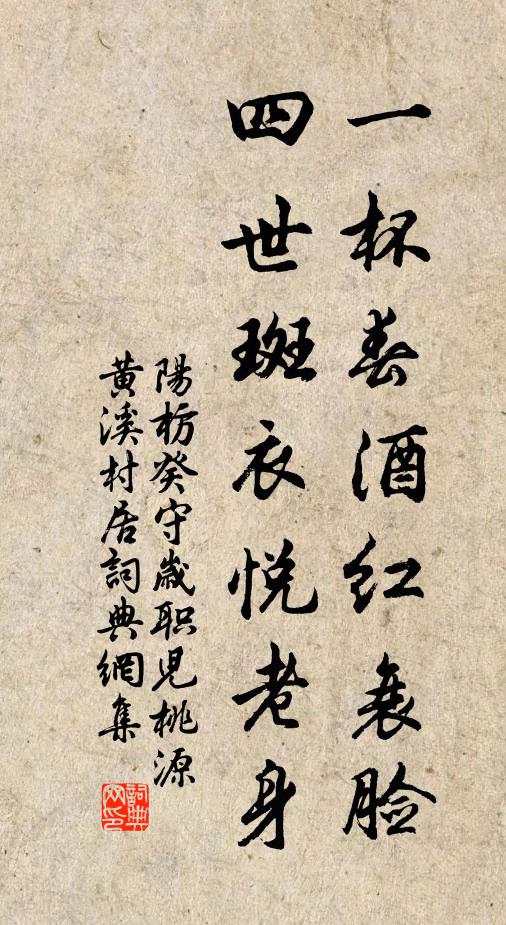 一杯春酒红衰脸
四世斑衣悦老身
陽枋癸守歲职児桃源
黃溪村居詞典網集
詞典网印